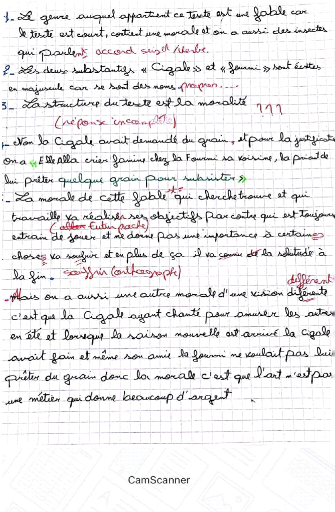 1- Le genre auquel appartient ce texte est une fable car
le texte est court, contient une morale et on a aussi des insectes
qui parlent accord sujet / verbe.
2- Les deux substantifs « Cigale » et « fourmi » sont écrites
en majuscule car se sont des noms propres...
3- La structure du texte est la moralité ???
(réponse incomp)
Non la Cigale avait demandé du grain, et pour la justificati
on a « Elle alla crier famine chez la Fourmi sa voisine, la priant de
lui prêter quelque grain pour subsister »
- La morale de cette fable qui cherche trouve et qui
travaille va réaliser ses objectifs par contre qui est toujours
(futur proche)
entrain de jouer et ne donne pas une importance à certaines
choses va soufrir et en plus de ça il va de la solitude à
la fin. souffrir (orthographe)
différent
- Mais on a aussi une autre morale d'une vision diférente
c'est que la Cigale ayant chanté pour amuser les autres
en été et lorsque la saison nouvelle est arrivé la Cigale
avait faim et même son amie la fourmi ne voulait pas lui
prêter du grain donc la morale c'est que l'art n'est pas
une métier qui donne beaucoup d'argent.
CamScanner